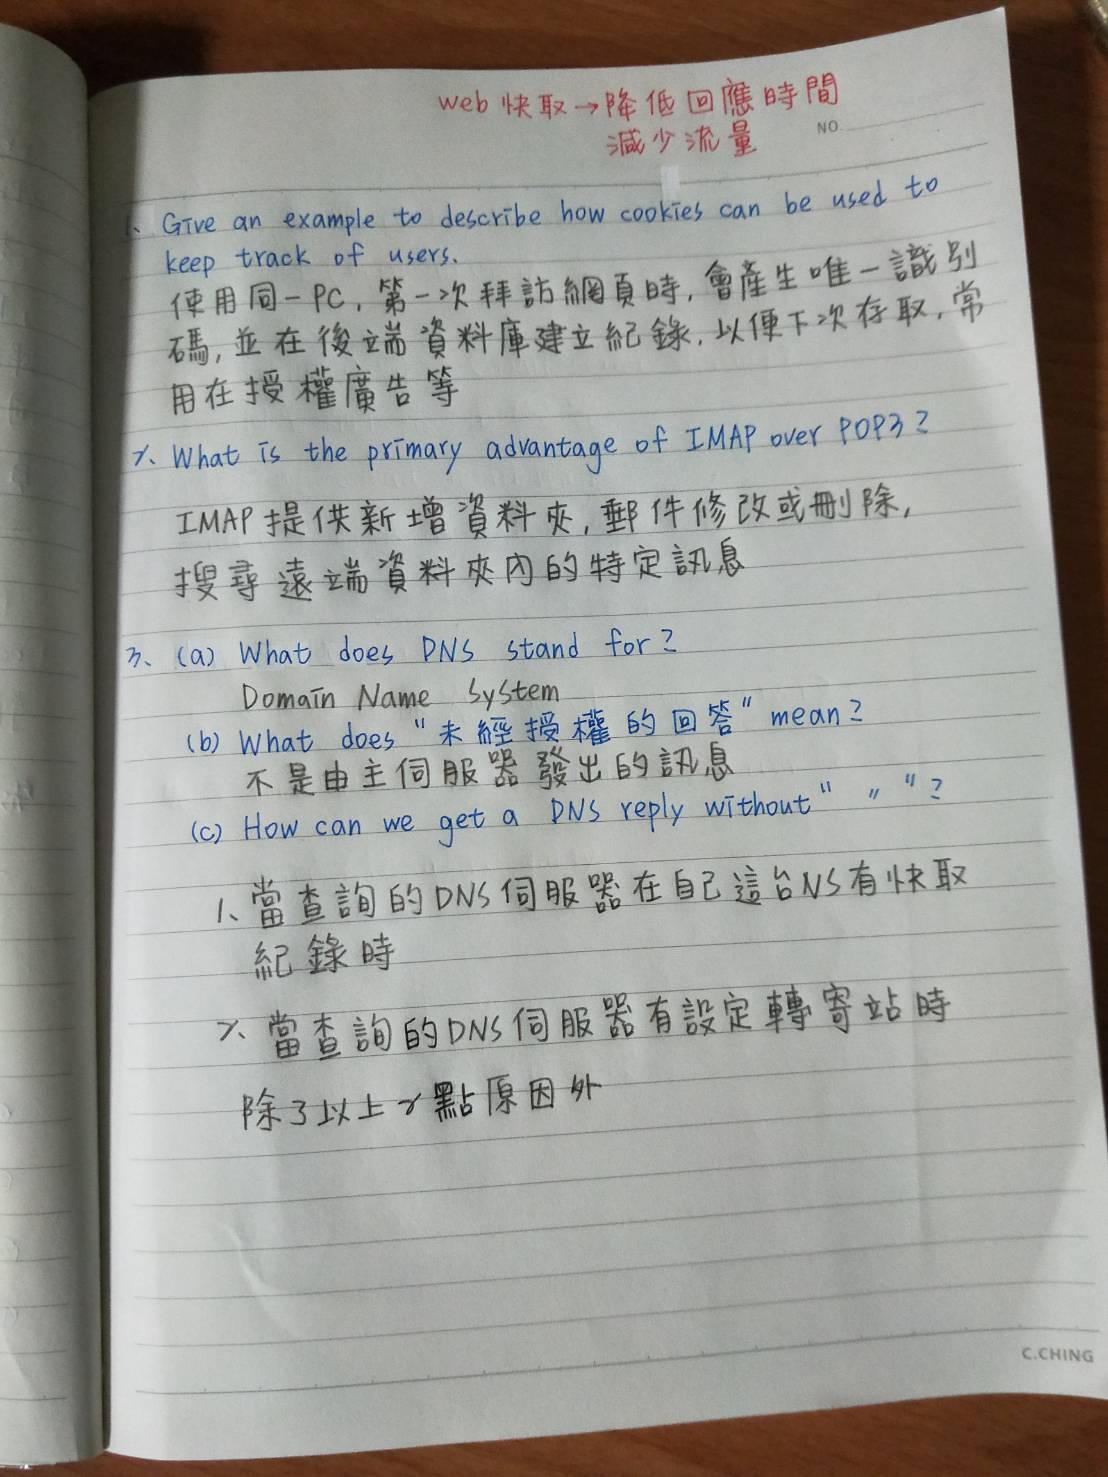 web 快取→降低回應時間
減少流量
NO.
1、Give an example to describe how cookies can be used to
keep track of users.
使用同一PC, 第一次拜訪網頁時, 會產生唯一識別
碼, 並在後端資料庫建立紀錄, 以便下次存取, 常
用在授權廣告等
2、What is the primary advantage of IMAP over POP3?
IMAP提供新增資料夾, 郵件修改或刪除,
搜尋遠端資料夾內的特定訊息
3、(a) What does DNS stand for?
Domain Name System
(b) What does "未經授權的回答" mean?
不是由主伺服器發出的訊息
(c) How can we get a DNS reply without " 〃 "?
1、當查詢的DNS伺服器在自己這台NS有快取
紀錄時
2、當查詢的DNS伺服器有設定轉寄站時
除了以上2點原因外
C.CHING